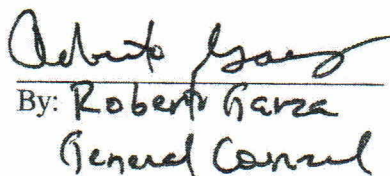 Roberto Garza
By: Roberto Garza
General Counsel